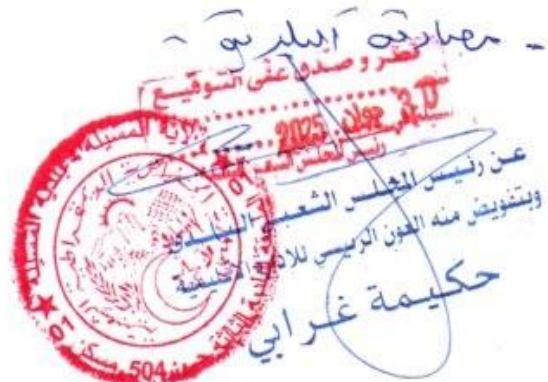 - مصادقة البلدية -
نظر و صدق على التوقيع
03 جوان 2025
رئيس المجلس الشعبي البلدي
عن رئيس المجلس الشعبي البلدي
وبتفويض منه العون الرئيسي للادارة الاقليمية
حكيمة غرابي
ولاية المسيلة بلدية المسيلة
504 مسكن